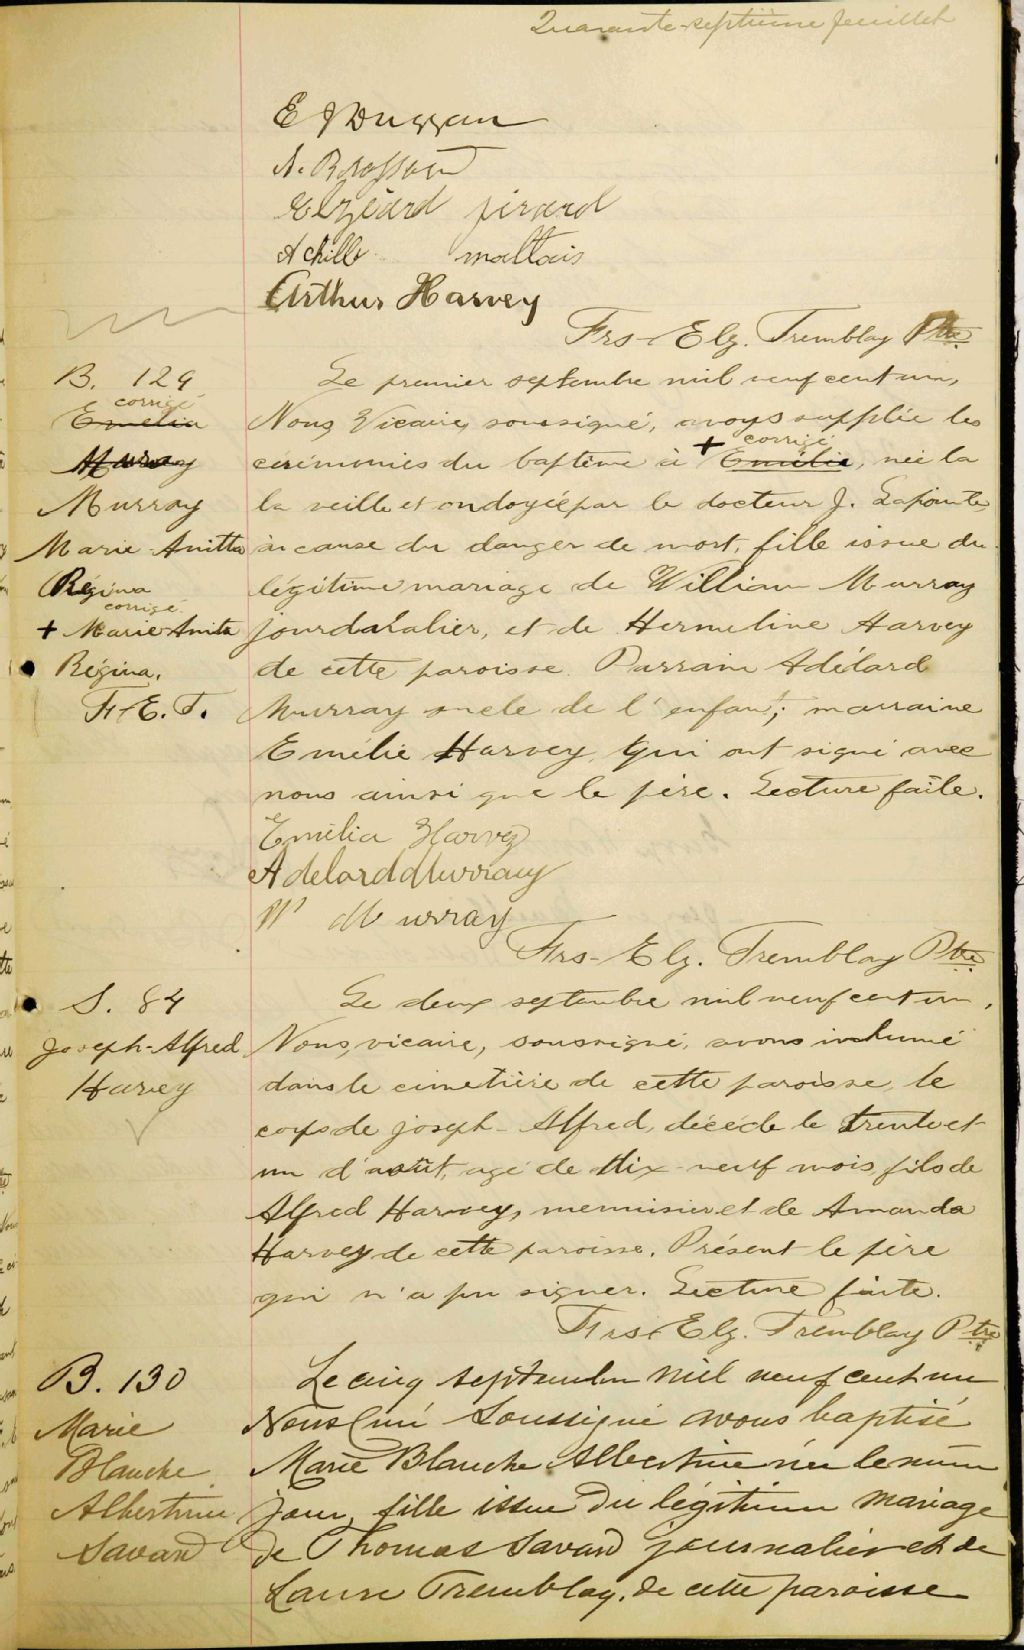 Quarante-septième feuillet
E J Duggan
A. Brassard
Elzéard Jirard
Achille maltais
Arthur Harvey
Frs-Elz. Tremblay Ptre
B. 129
corrigé
Emélia
Murray
Murray
Marie-Anitta
Régina
corrigé
+ Marie-Anita
Régina,
F.-E. T.
Le premier septembre mil neuf cent un,
Nous, Vicaire, soussigné, avons supplée les
corrigé
cérémonies du baptême à + Emélie, née la
la veille et ondoyée par le docteur J. Lapointe
à cause du danger de mort, fille issue du
légitime mariage de William Murray
journalier, et de Hermeline Harvey
de cette paroisse. Parrain Adélard
Murray oncle de l'enfant; marraine
Emélie Harvey, qui ont signé avec
nous ainsi que le père. Lecture faite.
Emélia Harvey
Adelard Murray
Wm Murray
Frs-Elz. Tremblay Ptre
S. 84
Joseph-Alfred
Harvey
Le deux septembre mil neuf cent un,
Nous, vicaire, soussigné, avons inhumé
dans le cimetière de cette paroisse, le
corps de Joseph-Alfred, décédé le trente et
un d'août, agé de dix-neuf mois, fils de
Alfred Harvey, menuisier et de Amanda
Harvey de cette paroisse. Présent le père
qui n'a pu signer. Lecture faite.
Frs-Elz. Tremblay Ptre
B. 130
Marie
Blanche
Albertine
Savard
Le cinq septembre mil neuf cent un
Nous Curé soussigné avons baptisé
Marie Blanche Albertine née le même
jour, fille issue du légitime mariage
de Thomas Savard journalier et de
Laure Tremblay, de cette paroisse